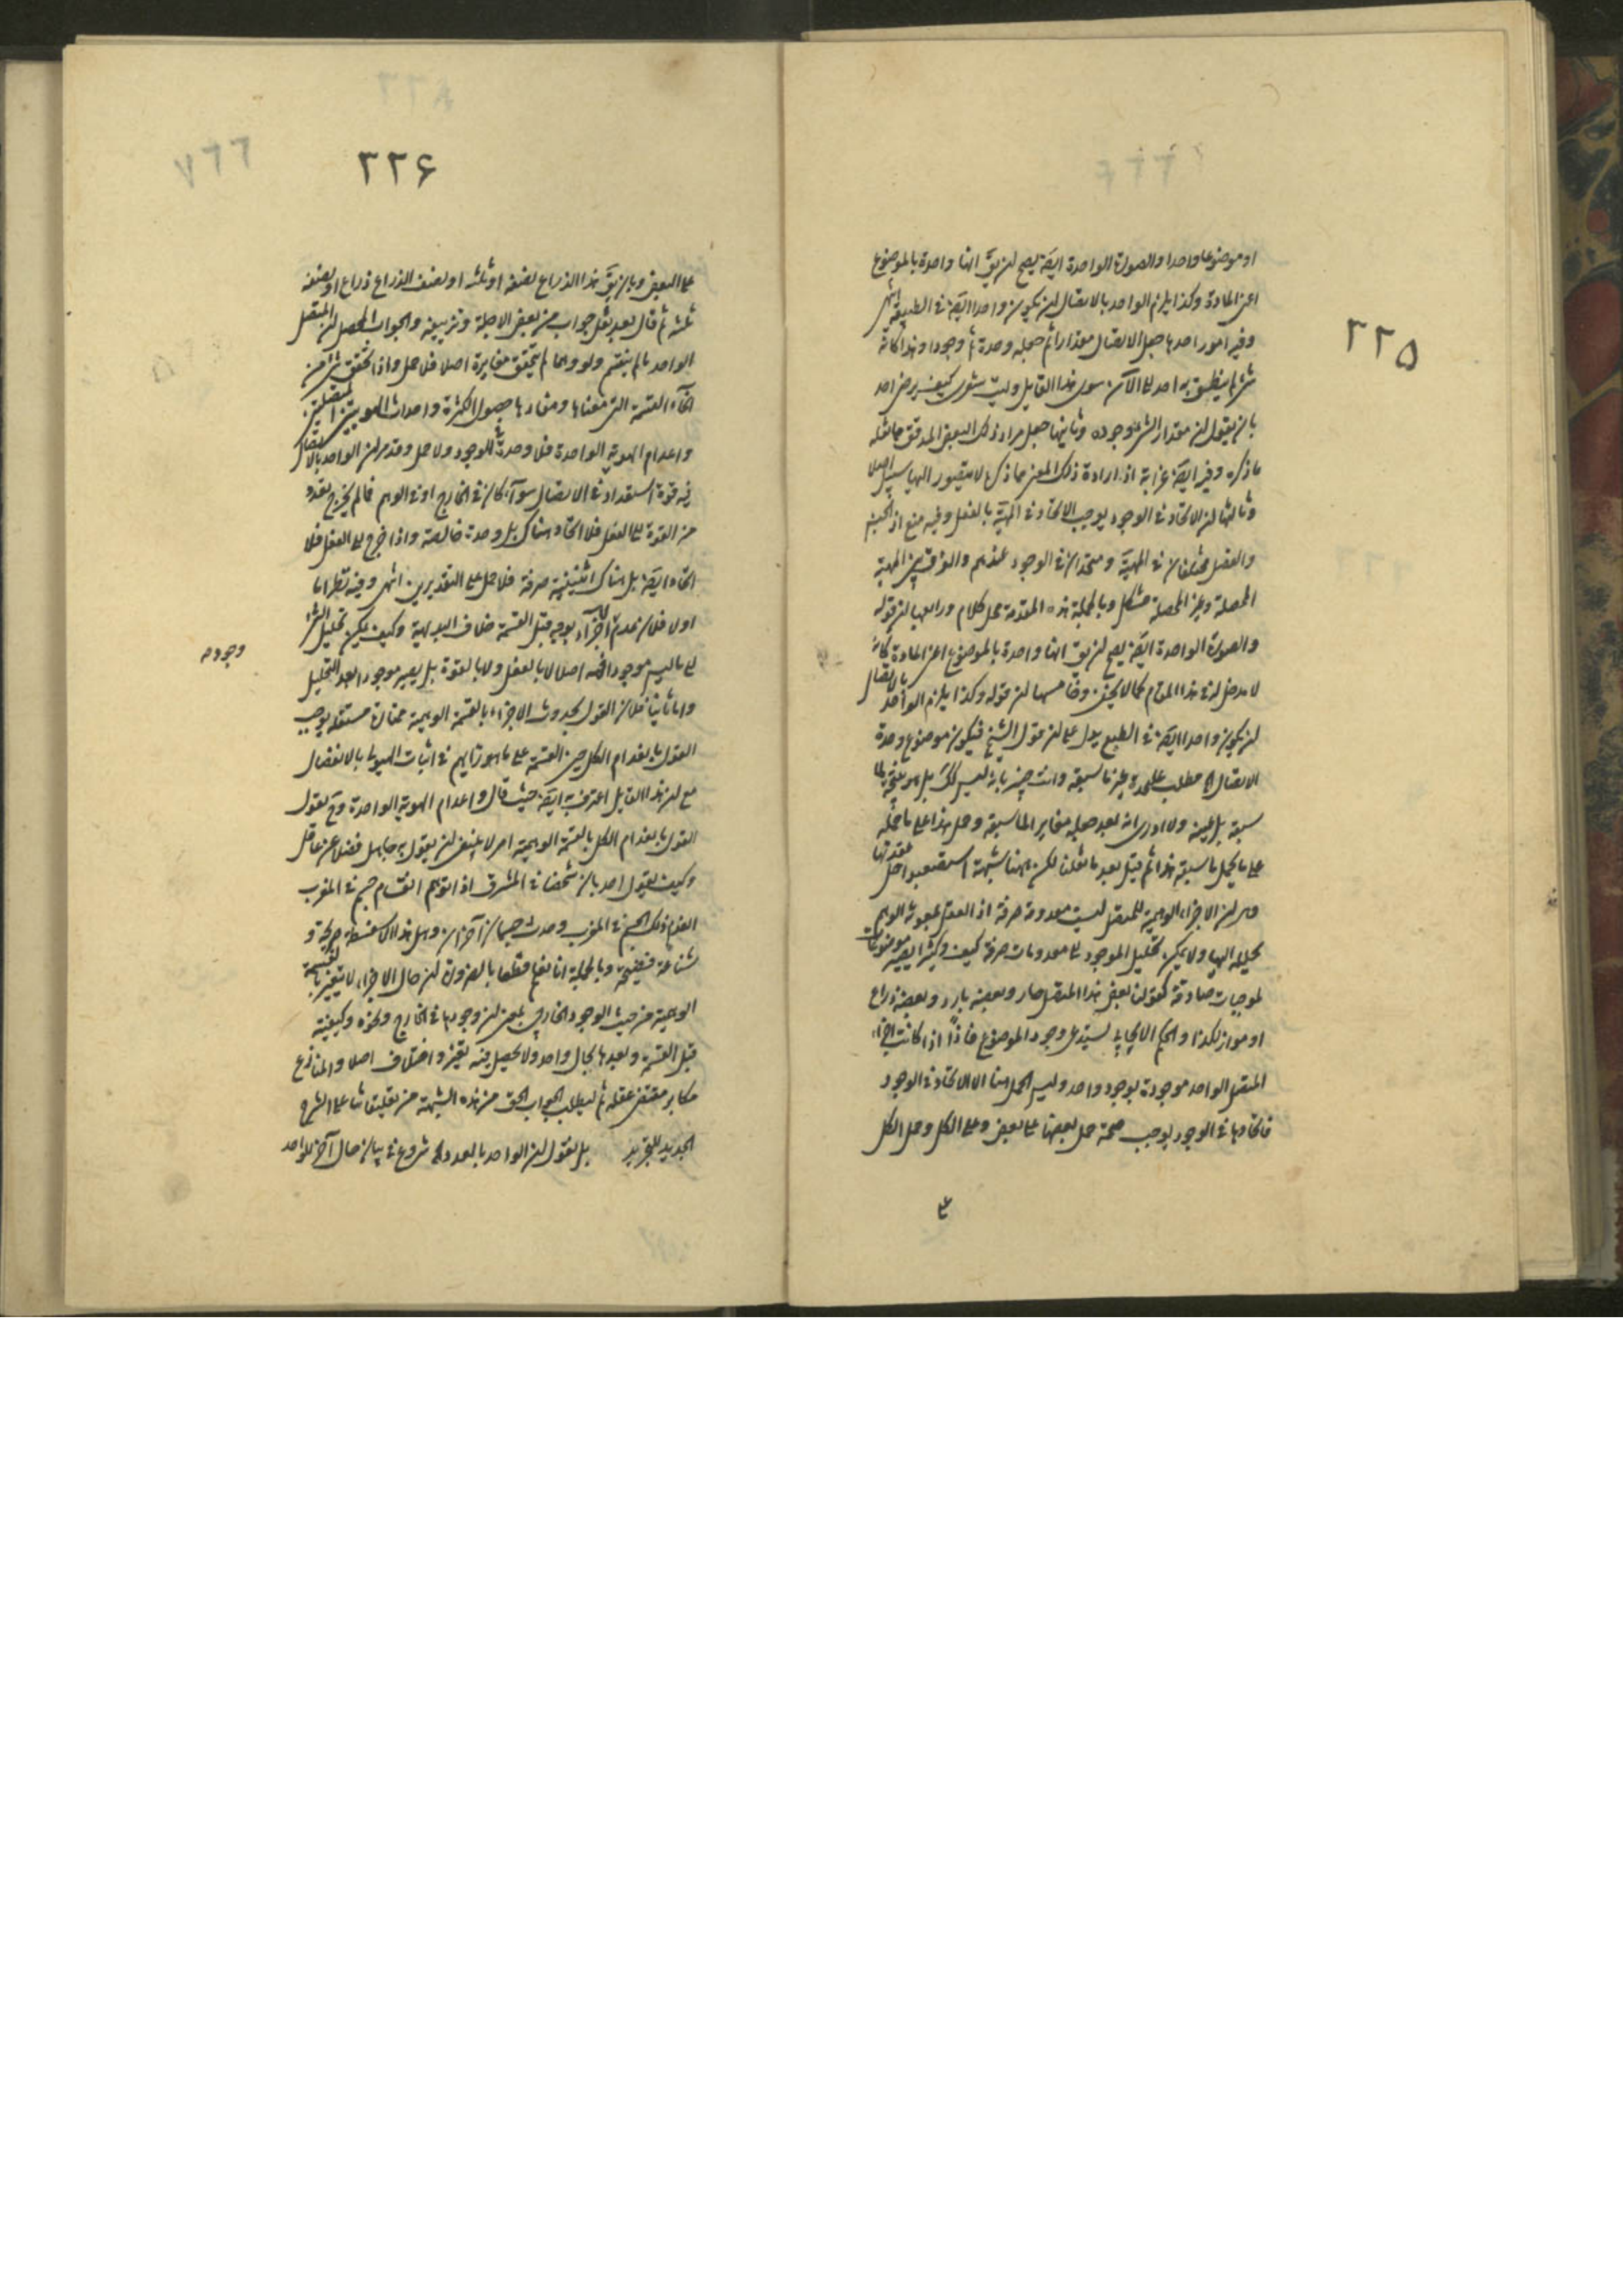 ٢٢٥
او موضوعا واحدا والصورة الواحدة ايضا يصح ان يقَ انها واحدة بالموضوع
اعنى المادة وكذا يلزم الواحد بالاتصال ان يكون واحدا ايضا فى الطبيعة انتهى
وفيه امور احدها جعل الاتصال مقدارا ثم جعله وحدة ثم وجودا وهذا كانه
شئ لم ينطق به احد الى الآن سوى هذا القايل وليت شعرى كيف يرضى احد
بان يقول ان مقدار الشئ وجوده وثانيها جعل مراد ذلك البعض المدقق مما نقله
ما ذكره وفيه ايضا غرابة اذ ارادة ذلك المعنى مما ذكره لا يتصور اليها سبيل اصلا
وثالثها ان الاتحاد فى الوجود يوجب الاتحاد فى المهية بالفعل وفيه منع اذ الجنس
والفصل مختلفان فى المهية ومتحدان فى الوجود عندهم والفرق بين المهية
المحصلة وغير المحصلة مشكل وبالجملة هذه المقدمة محل كلام ورابعها ان قوله
والصورة الواحدة ايضا يصح ان يقَ انها واحدة بالموضوع اعنى المادة كانه
لا مدخل له فى هذا المقام كما لا يخفى وخامسها ان قوله وكذا يلزم الواحد بالاتصال
ان يكون واحدا ايضا فى الطبع يدل على ان قول الشيخ فيكون موضوع وحدة
الاتصال الخ مطلب عليحدة غير ما سبقه وانت خبير بانه ليس كذلك بل هو نتيجة لما
سبقه بل عينه ولا ادرى انه بعد جعله مغاير الما سبقه وحل هذا على ما حمله
على ما يحمل ما سبقه هذا ثم قيل بعد ما نقلنا لكن ههنا شبهة استصعبوا حل عقدتها
وهى ان الاجزاء الوهمية للمتصل ليست معدومة صرفة اذ العقل بمعونة الوهم
يحلله اليها ولا يمكن تحليل الموجود الى معدومات صرفة كيف وكثيرا يصير موضوعات
لموجبات صادقة كقولنا بعض هذا المتصل حار وبعضه بارد وبعضه ذراع
او مواز لكذا والحكم الايجابى يستدعى وجود الموضوع فاذاً اذا كانت اجزاء
المتصل الواحد موجودة بوجود واحد وليس الحمل هنا الا الاتحاد فى الوجود
فاتحادها فى الوجود يوجب صحة حمل بعضها على بعض وعلى الكل وحمل الكل
٢٢۶
٧٦٦
على البعض وبان يقَ هذا الذراع نصفه او ثلثه او نصف الذراع ذراع او نصفه
ثلثه ثم قال بعد نقل جواب من بعض الاجلة وتزييفه والجواب المحصل ان المتصل
الواحد ما لم ينقسم ولو وهما لم يتحقق مغايرة اصلا فلا حمل واذا تحقق شئ من
انحاء القسمة التى معناها ومفادها حصول الكثرة واحداث الهويتين المتصلتين
واعدام الهوية الواحدة فلا وحدة فى الوجود ولا حمل وقد مر ان الواحد بالاتصال
فيه قوة استعداد فى الاتصال سواء كان فى الخارج او فى الوهم فما لم يخرج تعدد
من القوة الى الفعل فلا اتحاد هناك بل وحدة خالصة واذا خرج الى الفعل فلا
اتحاد ايضا بل هناك اثنينية صرفة فلا حمل على التقديرين انتهى وفيه نظر اما
اولا فلان عدم الاجزاء بوجه قبل القسمة خلاف البديهة وكيف يمكن تحليل الشئ
الى ما ليس موجودا فيه اصلا لا بالفعل ولا بالقوة بل يصير موجودا بعد التحليل
وجوده
واما ثانيا فلان القول بحدوث الاجزاء بالقسمة الوهمية مما يوجب
القول بانعدام الكل حين القسمة على ما هو رايهم فى اثبات الهيولى بالانفصال
مع ان هذا القايل اعترف به ايضا حيث قال واعدام الهوية الواحدة وح نقول
القول بانعدام الكل بالقسمة الوهمية امر لا ينبغى ان يقول به جاهل فضلا عن عاقل
وكيف يقول احد بان شخصا فى المشرق اذا توهم انقسام جسم فى المغرب
انعدم ذلك الجسم فى المغرب وحدث جسمان آخران وهل هذا الا سفسطة صريحة و
شناعة فضيحة وبالجملة انا نعلم قطعا بالضرورة ان حال الاجزاء لا يتغير بالقسمة
الوهمية من حيث الوجود الخارجى بمعنى ان وجودها فى الخارج ونحوه وكيفيته
قبل القسمة وبعدها بحال واحد ولا يحصل فيه تغير واختلاف اصلا والمنازع
مكابر مقتضى عقله ثم ليطلب الجواب الحق من هذه الشبهة من تعليقاتنا على الشرح
الجديد للتجريد بل نقول ان الواحد بالعدد الخ شروع فى بيان حال آخر للواحد